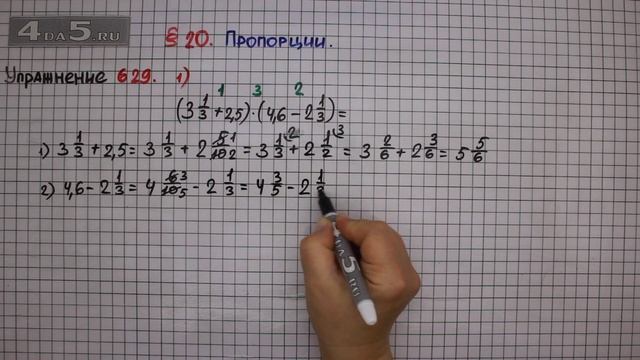 4DA5.RU
§ 20. Пропорции.
Упражнение 629. 1)
1 3 2
(3 1/3 + 2,5) · (4,6 − 2 1/3) =
1) 3 1/3 + 2,5 = 3 1/3 + 2 5/10 1/2 = 3 1/3 \2 + 2 1/2 \3 = 3 2/6 + 2 3/6 = 5 5/6
2) 4,6 − 2 1/3 = 4 6/10 3/5 − 2 1/3 = 4 3/5 − 2 1/3
4DA5.RU